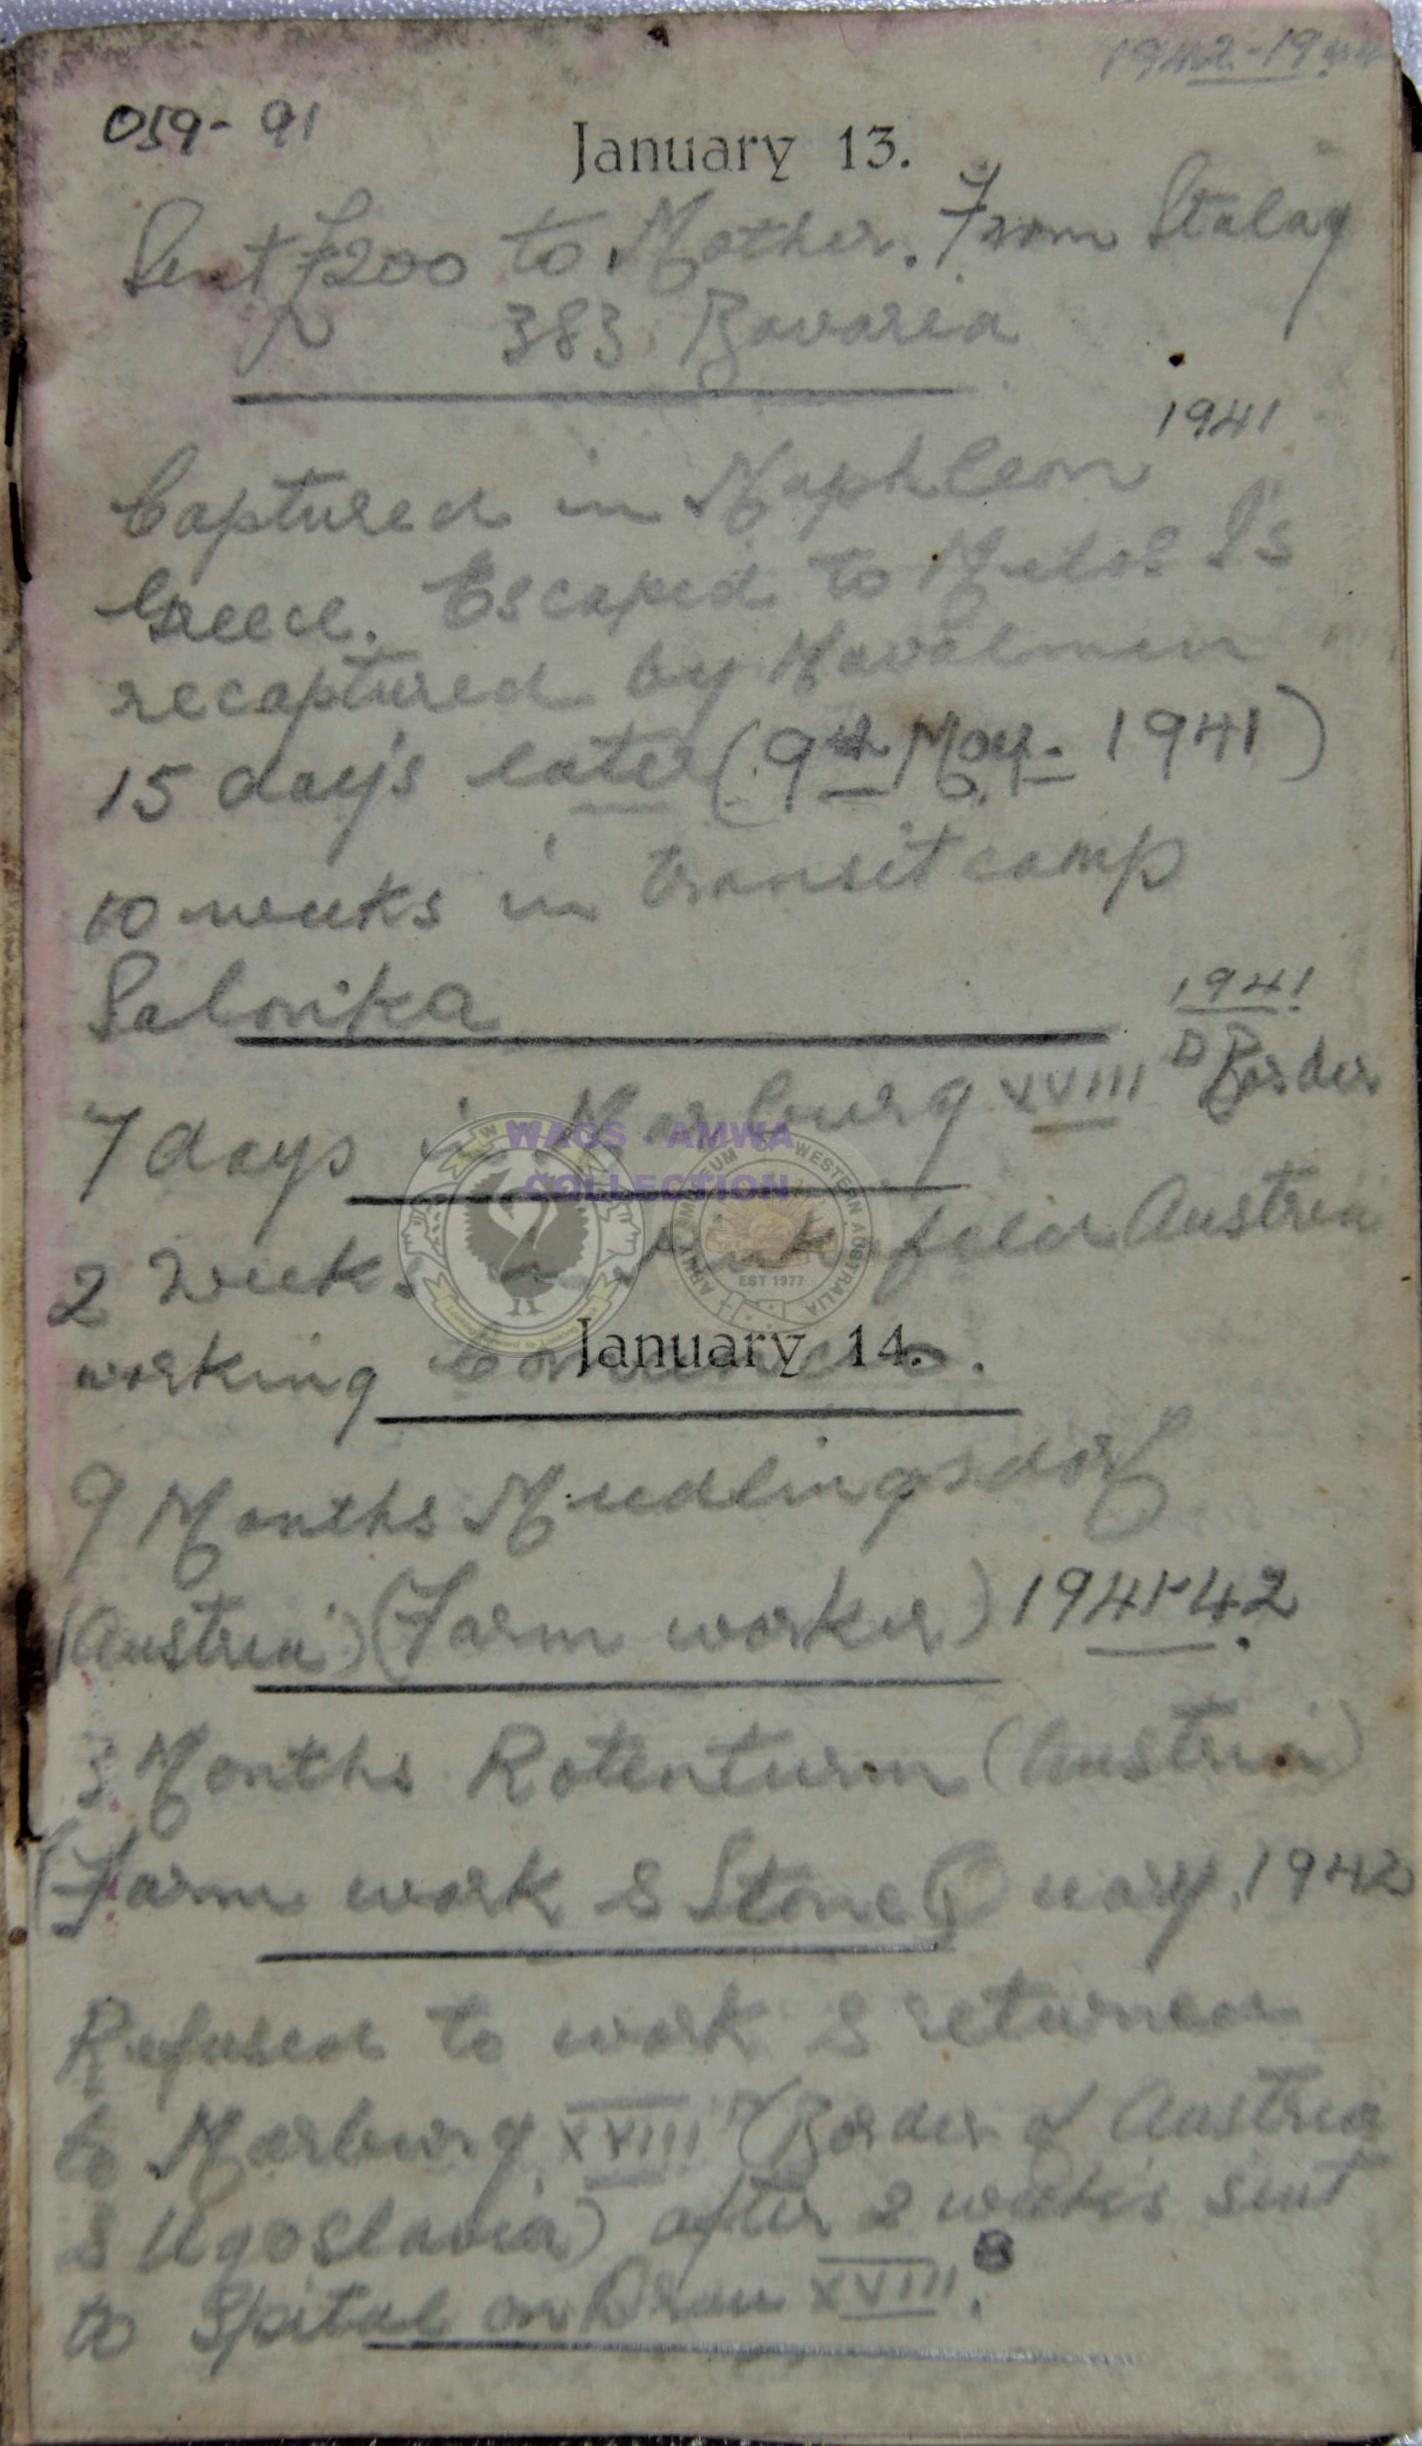 1942-1944
059-91
January 13.
Sent £200 to Mother. From Stalag
383 Bavaria
1941
Captured in Naphleon
Greece. Escaped to Melos Is
recaptured by Navalmen
15 day's later (9th May. 1941)
10 weeks in transit camp
Salonika
1941
7 days in Marburg XVIII D Border
WAGS AMWA
COLLECTION
ARMY MUSEUM OF WESTERN AUSTRALIA
EST 1977
2 Weeks in Pinkafeld Austria
January 14.
working
9 Months Mudlingsdorf
(Austria) (Farm worker) 1941-42
3 Months Rotenturm (Austria)
(Farm work & Stone Quary. 1942
Refused to work & returned
to Marburg XVIII D (Border of Austria
& Ugoslavia) after 2 weeks sent
to Spital on Drau XVIII B.